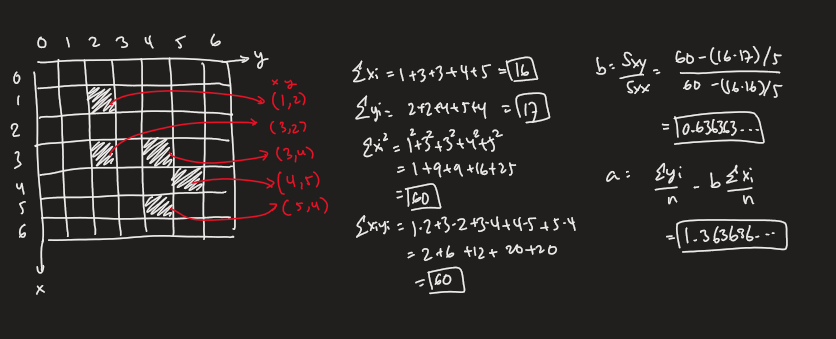 0 1 2 3 4 5 6
y
0
1
2
3
4
5
6
x
x y
(1,2)
(3,2)
(3,4)
(4,5)
(5,4)
Σxi = 1+3+3+4+5 = 16
Σyi = 2+2+4+5+4 = 17
Σxi² = 1²+3²+3²+4²+5²
= 1+9+9+16+25
= 60
Σxiyi = 1·2+3·2+3·4+4·5+5·4
= 2+6+12+20+20
= 60
b = Sxy/Sxx = (60-(16·17)/5)/(60-(16·16)/5)
= 0.636363...
a = Σyi/n - b Σxi/n
= 1.363636...